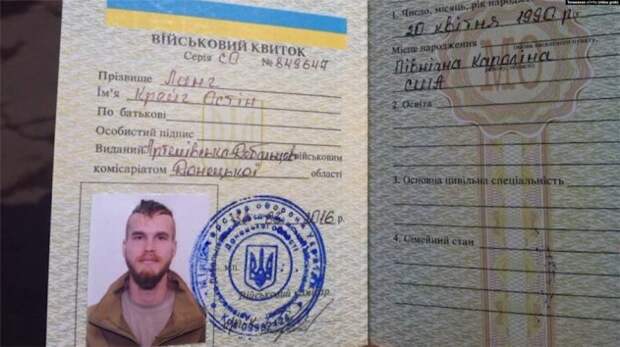 ВІЙСЬКОВИЙ КВИТОК
Серія СО №849647
Прізвище Ланг
Ім'я Крейг Остін
По батькові
Особистий підпис
Виданий Артемівсько військовим
комісаріатом Донецької області
2016 р.
м.п.
військовий
1. Число, місяць, рік народження
20 квітня 1990 р.
Місце народження
Північна Кароліна
США
2. Освіта
3. Основна цивільна спеціальність
4. Сімейний стан